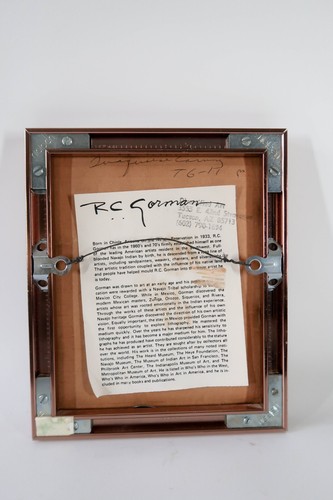 T6-11
R.C. Gorman
Tucson, AZ
(602) 790-1234
Born in Chinle, Arizona on the Navajo Reservation in 1933, R.C.
Gorman has in the 1960's and 70's firmly established himself as one
of the leading American artists resident in the Southwest. Full-
blooded Navajo Indian by birth, he is descended from a long line of
artists, including sandpainters, weavers, chanters, and silversmiths.
That artistic tradition coupled with the influence of his native land
and people have helped mould R.C. Gorman into the artist print he
is today.
Gorman was drawn to art at an early age and his post
cation were rewarded with a Navajo Tribal scholarship to
Mexico City College. While in Mexico, Gorman discovered the
modern Mexican masters, Zuñiga, Orozco, Siqueiros, and Rivera,
artists whose art was rooted emotionally in the Indian experience.
Through the works of those artists and the influence of his own
heritage Gorman discovered the direction of his own artistic
vision. Equally important, the stay in Mexico provided Gorman with
the first opportunity to explore lithography. He mastered the
medium quickly. Over the years he has sharpened his sensitivity to
lithography and it has become a major medium for him. The litho-
graphs he has produced have contributed considerably to the stature
he has achieved as an artist. They are sought after by collectors all
over the world. His work is in the collections of many noted insti-
tutions, including The Heard Museum, The Heye Foundation, The
Navajo Museum, The Museum of Indian Art in San Francisco, The
Philbrook Art Center, The Indianapolis Museum of Art, and The
Metropolitan Museum of Art. He is listed in Who's Who in the West,
Who's Who in America, Who's Who in Art in America, and he is in-
cluded in many books and publications.